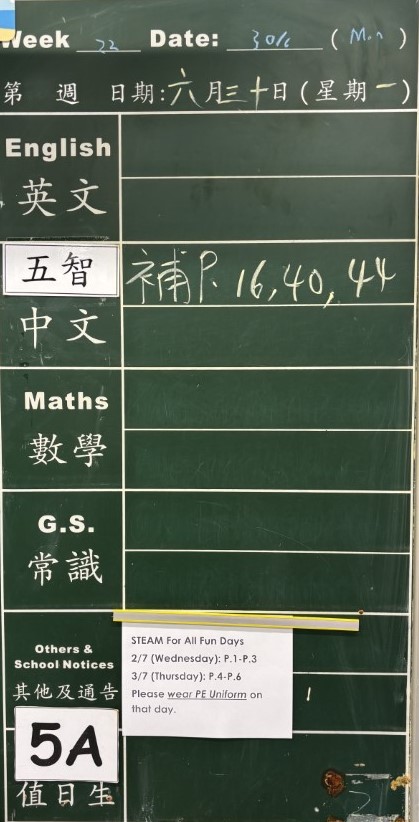 Week 22 Date: 30/6 (Mon)
第 週 日期:六月三十日(星期一)
English
英文
五智 補P. 16,40,44
中文
Maths
數學
G.S.
常識
Others &
School Notices
其他及通告
STEAM For All Fun Days
2/7 (Wednesday): P.1-P.3
3/7 (Thursday): P.4-P.6
Please wear PE Uniform on
that day.
5A
值日生